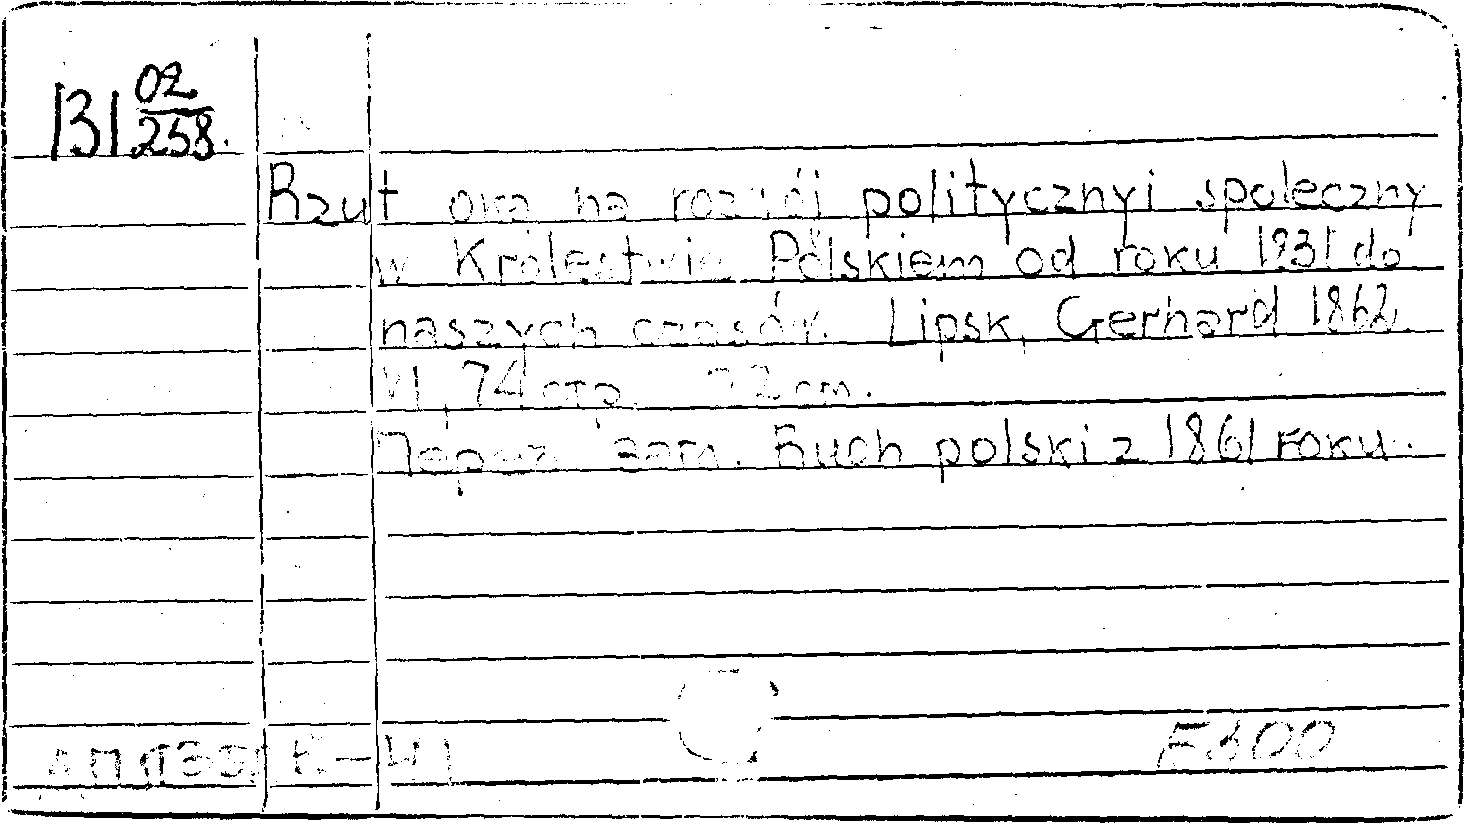 131 02/258.
Rzut oka na rozwój polityczny i spoleczny
w Królestwie Polskiem od roku 1831 do
naszych czasów. Lipsk, Gerhard 1862.
VI, 74 стр. 22 cm.
Перед загл. Ruch polski z 1861 roku.
F300